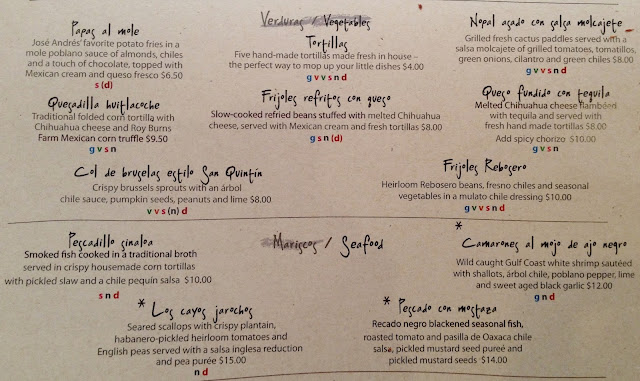 Verduras / Vegetables
Papas al mole
José Andrés' favorite potato fries in a
mole poblano sauce of almonds, chiles
and a touch of chocolate, topped with
Mexican cream and queso fresco $6.50
s (d)
Tortillas
Five hand-made tortillas made fresh in house –
the perfect way to mop up your little dishes $4.00
g v v s n d
Nopal asado con salsa molcajete
Grilled fresh cactus paddles served with a
salsa molcajete of grilled tomatoes, tomatillos,
green onions, cilantro and green chiles $8.00
g v v s n d
Quesadilla huitlacoche
Traditional folded corn tortilla with
Chihuahua cheese and Roy Burns
Farm Mexican corn truffle $9.50
g v s n
Frijoles refritos con queso
Slow-cooked refried beans stuffed with melted Chihuahua
cheese, served with Mexican cream and fresh tortillas $8.00
g s n (d)
Queso fundido con tequila
Melted Chihuahua cheese flambéed
with tequila and served with
fresh hand made tortillas $8.00
Add spicy chorizo $10.00
g v s n
Col de bruselas estilo San Quintín
Crispy brussels sprouts with an árbol
chile sauce, pumpkin seeds, peanuts and lime $8.00
v v s (n) d
Frijoles Rebosero
Heirloom Rebosero beans, fresno chiles and seasonal
vegetables in a mulato chile dressing $10.00
g v v s n d
Mariscos / Seafood
Pescadillo sinaloa
Smoked fish cooked in a traditional broth
served in crispy housemade corn tortillas
with pickled slaw and a chile pequín salsa $10.00
s n d
*
Camarones al mojo de ajo negro
Wild caught Gulf Coast white shrimp sautéed
with shallots, árbol chile, poblano pepper, lime
and sweet aged black garlic $12.00
g n d
* Los cayos jarochos
Seared scallops with crispy plantain,
habanero-pickled heirloom tomatoes and
English peas served with a salsa inglesa reduction
and pea purée $15.00
n d
* Pescado con mostaza
Recado negro blackened seasonal fish,
roasted tomato and pasilla de Oaxaca chile
salsa, pickled mustard seed pureé and
pickled mustard seeds $14.00